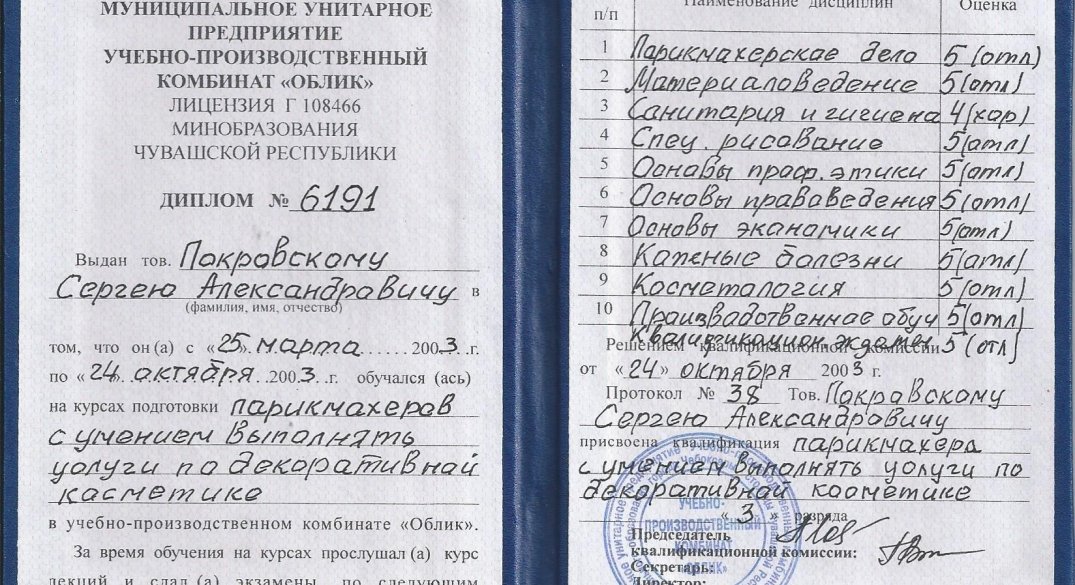 МУНИЦИПАЛЬНОЕ УНИТАРНОЕ
ПРЕДПРИЯТИЕ
УЧЕБНО-ПРОИЗВОДСТВЕННЫЙ
КОМБИНАТ «ОБЛИК»
ЛИЦЕНЗИЯ Г 108466
МИНОБРАЗОВАНИЯ
ЧУВАШСКОЙ РЕСПУБЛИКИ
ДИПЛОМ № 6191
Выдан тов. Покровскому
Сергею Александровичу в
(фамилия, имя, отчество)
том, что он(а) с «25» марта 2003 г.
по «24» октября 2003 г. обучался (ась)
на курсах подготовки парикмахеров
с умением выполнять
услуги по декоративной
косметике
в учебно-производственном комбинате «Облик».
За время обучения на курсах прослушал(а) курс
лекций и сдал(а) экзамены по следующим
п/п Наименование дисциплин Оценка
1 Парикмахерское дело 5 (отл)
2 Материаловедение 5(отл)
3 Санитария и гигиена 4(хор)
4 Спец. рисование 5(отл)
5 Основы проф. этики 5(отл)
6 Основы правоведения 5(отл)
7 Основы экономики 5(отл)
8 Кожные болезни 5(отл)
9 Косметология 5(отл)
10 Производственное обуч 5(отл)
Квалификацион экзамен 5 (отл)
Решением квалификационной комиссии
от «24» октября 2003 г.
Протокол № 38 Тов. Покровскому
Сергею Александровичу
присвоена квалификация парикмахера
с умением выполнять услуги по
декоративной косметике
«3» разряда
Председатель
квалификационной комиссии:
Секретарь:
Директор:
УЧЕБНО-
ПРОИЗВОДСТВЕННЫЙ
КОМБИНАТ
«ОБЛИК»